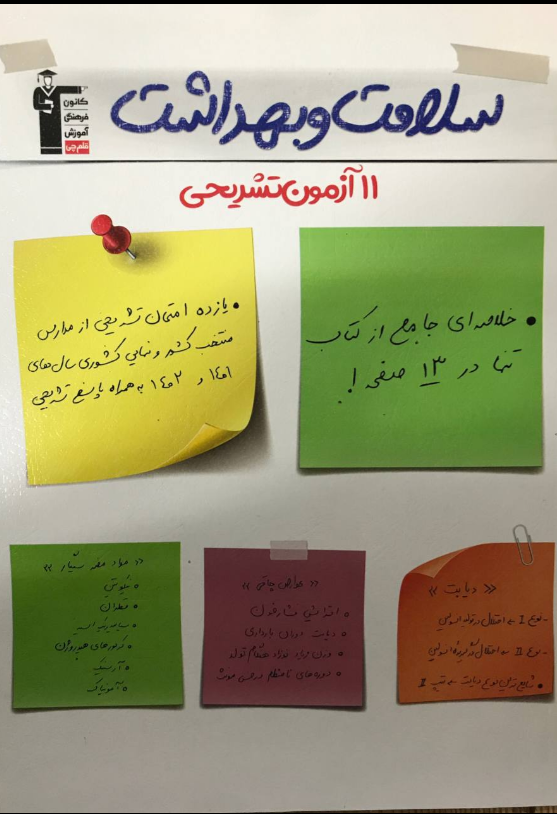 کانون
فرهنگی
آموزش
قلم‌چی
سلامت و بهداشت
۱۱ آزمون تشریحی
• یازده امتحان تشریحی از مدارس
منتخب کشور و نهایی کشوری سال‌های
۱۴۰۱ و ۱۴۰۲ به همراه پاسخ تشریحی
• خلاصه‌ای جامع از کتاب
تنها در ۱۳ صفحه!
« مواد مضر سیگار »
• نیکوتین
• قطران
• سیانید
• کربورهای هیدروژن
• آرسنیک
• آمونیاک
« عوارض چاقی »
• افزایش فشار خون
• دیابت دوران بارداری
• وزن زیاد نوزاد هنگام تولد
• دوره‌های نامنظم
« دیابت »
- نوع I → اختلال در تولید انسولین
- نوع II → اختلال در انسولین
• شایع‌ترین نوع دیابت →